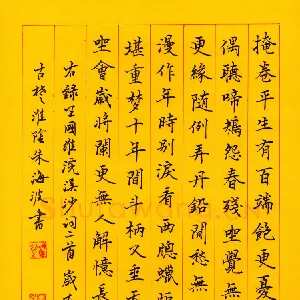 掩卷平生有百端飽更憂
偶聽啼鴂怨春殘坐覺無
更緣隨例弄丹鉛閒愁無
漫作年時別淚看西窗蠟
堪重梦十年間斗柄又垂天
坐會歲將闌更無人解憶長
右錄王國維浣溪沙詞二首歲在
古楚淮陰朱海波書